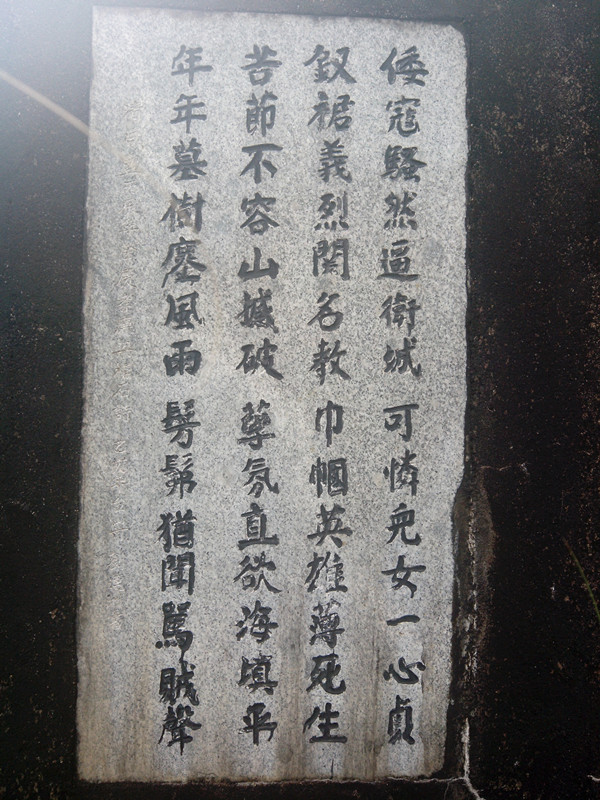 倭寇騷然逼衛城 可憐兒女一心貞
釵裙義烈関名教 巾幗英雄薄死生
苦節不容山撼破 孽氛直欲海填平
年年墓樹塞風雨 髣髴猶聞罵賊聲